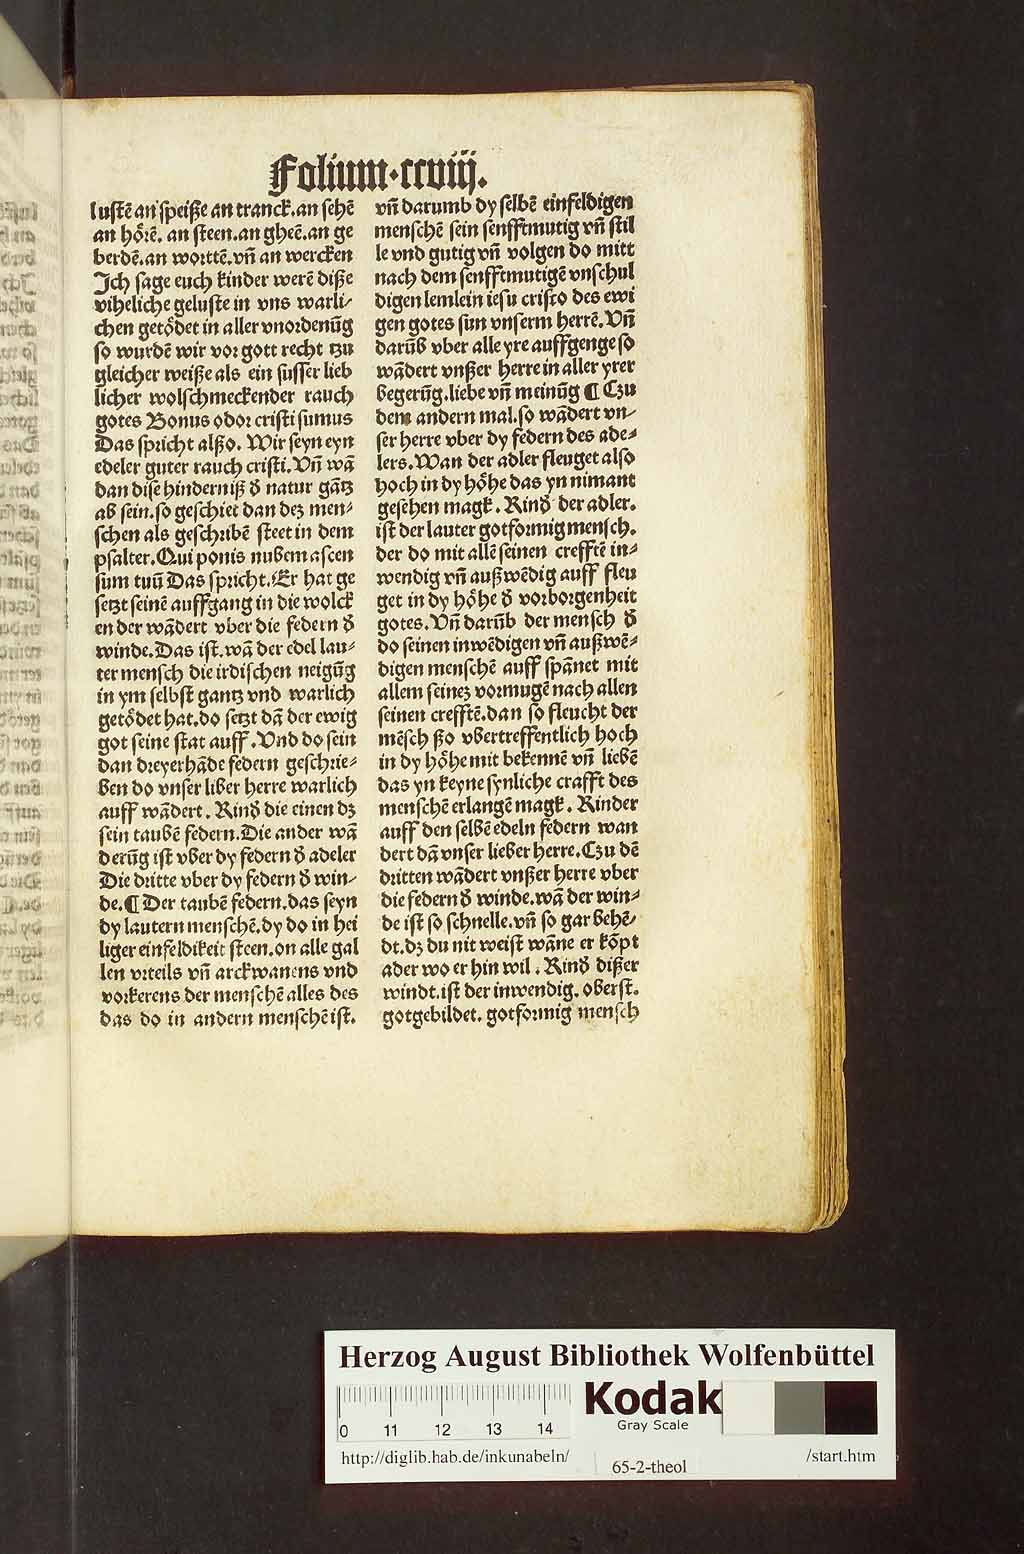 Folium·ccviij.
lustē an speiße an tranck.an sehē
an hörē. an steen.an gheē.an ge
berdē.an worttē.vñ an wercken
Jch sage euch kinder werē diße
viheliche geluste in vns warli-
chen getödet in aller vnordenūg
so wurdē wir vor gott recht tzu
gleicher weiße als ein susser lieb
licher wolschmeckender rauch
gotes Bonus odor cristi sumus
Das spricht alßo. Wir seyn eyn
edeler guter rauch cristi.Vñ wā
dan dise hinderniß d̄ natur gātz
ab sein.so geschiet dan dez men-
schen als geschribē steet in dem
psalter.Qui ponis nubem ascen
sum tuū Das spricht.Er hat ge
setzt seinē auffgang in die wolck
en der wādert vber die federn d̄
winde.Das ist.wā der edel lau-
ter mensch die irdischen neigūg
in ym selbst gantz vnd warlich
getödet hat.do setzt dā der ewig
got seine stat auff.Vnd do sein
dan dreyerhāde federn geschrie-
ben do vnser liber herre warlich
auff wādert. Rind̄ die einen dz
sein taubē federn.Die ander wā
derūg ist vber dy federn d̄ adeler
Die dritte vber dy federn d̄ win-
de.¶ Der taubē federn.das seyn
dy lautern menschē.dy do in hei
liger einfeldikeit steen.on alle gal
len vrteils vñ arckwanens vnd
vorkerens der menschē alles des
das do in andern menschē ist.
vñ darumb dy selbē einfeldigen
menschē sein senfftmutig vñ stil
le vnd gutig vñ volgen do mitt
nach dem senfftmutigē vnschul
digen lemlein iesu cristo des ewi
gen gotes sun vnserm herrē.Vñ
darūb vber alle yre auffgenge so
wādert vnßer herre in aller yrer
begerūg.liebe vñ meinūg ¶ Czu
dem andern mal.so wādert vn-
ser herre vber dy federn des ade-
lers.Wan der adler fleuget also
hoch in dy höhe das yn nimant
gesehen magk. Rind̄ der adler.
ist der lauter gotformig mensch.
der do mit allē seinen crefftē in-
wendig vñ außwēdig auff fleu
get in dy höhe d̄ vorborgenheit
gotes.Vñ darūb der mensch d̄
do seinen inwēdigen vñ außwē-
digen menschē auff spānet mit
allem seinez vormugē nach allen
seinen crefftē.dan so fleucht der
mēsch ßo vbertreffentlich hoch
in dy höhe mit bekennē vñ liebē
das yn keyne synliche crafft des
menschē erlangē magk. Rinder
auff den selbē edeln federn wan
dert dā vnser lieber herre.Czu dē
dritten wādert vnßer herre vber
die federn d̄ winde.wā der win-
de ist so schnelle.vñ so gar behē-
dt.dz du nit weist wāne er kōpt
ader wo er hin wil. Rind̄ dißer
windt.ist der inwendig. oberst.
gotgebildet. gotformig mensch
Herzog August Bibliothek Wolfenbüttel
0 11 12 13 14
Kodak
Gray Scale
http://diglib.hab.de/inkunabeln/ 65-2-theol /start.htm